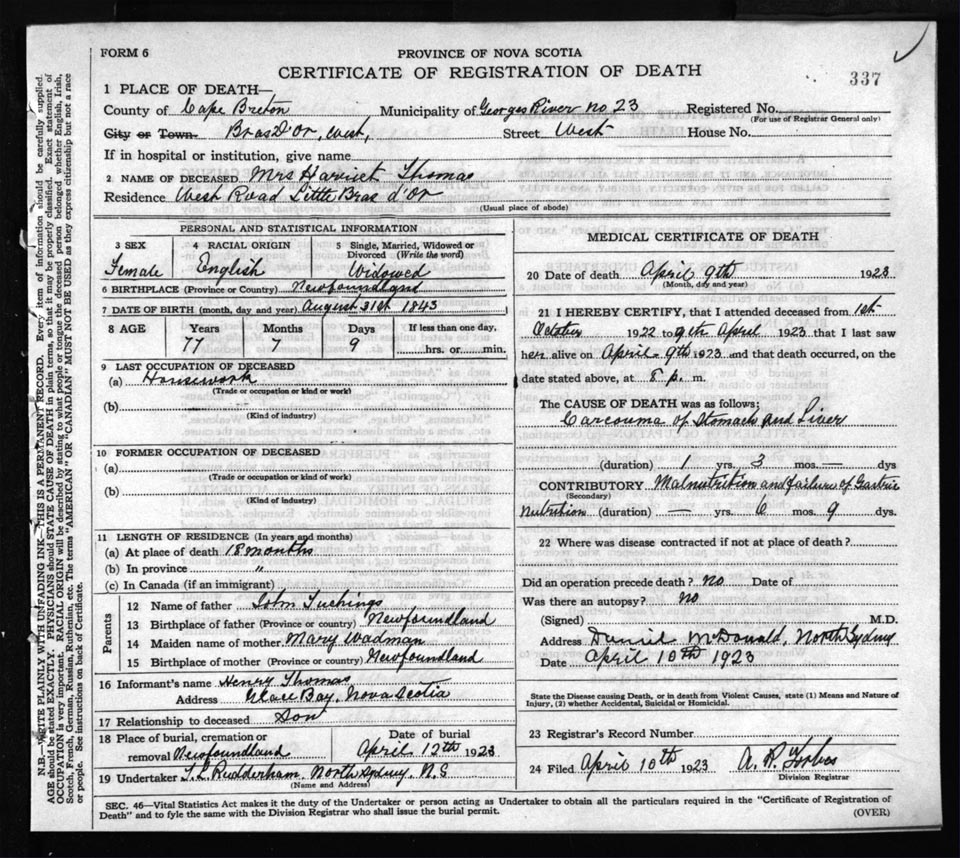 FORM 6
PROVINCE OF NOVA SCOTIA
CERTIFICATE OF REGISTRATION OF DEATH
337
1 PLACE OF DEATH—
County of Cape Breton Municipality of Georges River No 23 Registered No.
(For use of Registrar General only)
City or Town. Bras D'Or, West, Street West House No.
If in hospital or institution, give name
2 NAME OF DECEASED Mrs Harriet Thomas
Residence West Road Little Bras d'Or
(Usual place of abode)
PERSONAL AND STATISTICAL INFORMATION
3 SEX 4 RACIAL ORIGIN 5 Single, Married, Widowed or Divorced (Write the word)
Female English Widowed
6 BIRTHPLACE (Province or Country) Newfoundland
7 DATE OF BIRTH (month, day and year) August 31st 1843
8 AGE Years Months Days If less than one day,
77 7 9 hrs. or min.
9 LAST OCCUPATION OF DECEASED
(a) Housework
(Trade or occupation or kind or work)
(b)
(Kind of industry)
10 FORMER OCCUPATION OF DECEASED
(a)
(Trade or occupation or kind of work)
(b)
(Kind of Industry)
11 LENGTH OF RESIDENCE (In years and months)
(a) At place of death 18 months
(b) In province "
(c) In Canada (if an immigrant)
Parents
12 Name of father John
13 Birthplace of father (Province or country) Newfoundland
14 Maiden name of mother Mary Wadman
15 Birthplace of mother (Province or country) Newfoundland
16 Informant's name Henry Thomas
Address Glace Bay, Nova Scotia
17 Relationship to deceased Son
18 Place of burial, cremation or removal Newfoundland
Date of burial April 12th 1923
19 Undertaker T.L. Rudderham, North Sydney, N.S
(Name and Address)
MEDICAL CERTIFICATE OF DEATH
20 Date of death April 9th 1923
(Month, day and year)
21 I HEREBY CERTIFY, that I attended deceased from 1st
October 1922 to 9th April 1923 that I last saw
her alive on April 9th 1923 and that death occurred, on the
date stated above, at 8 p. m.
The CAUSE OF DEATH was as follows:
Carcouma of Stomach and Liver
(duration) 1 yrs. 3 mos. — dys
CONTRIBUTORY Malnutrition and failure of Gastric
(Secondary)
Nutrition (duration) — yrs. 6 mos. 9 dys.
22 Where was disease contracted if not at place of death?
Did an operation precede death? No Date of
Was there an autopsy? No
(Signed) M.D.
Address Daniel McDonald, North Sydney
Date April 10th 1923
State the Disease causing Death, or in death from Violent Causes, state (1) Means and Nature of
Injury, (2) whether Accidental, Suicidal or Homicidal.
23 Registrar's Record Number
24 Filed April 10th 1923 A. P. Forbes
Division Registrar
SEC. 46—Vital Statistics Act makes it the duty of the Undertaker or person acting as Undertaker to obtain all the particulars required in the "Certificate of Registration of
Death" and to fyle the same with the Division Registrar who shall issue the burial permit.
(OVER)
N.B.—WRITE PLAINLY WITH UNFADING INK—THIS IS A PERMANENT RECORD. Every item of information should be carefully supplied.
AGE should be stated EXACTLY. PHYSICIANS should STATE CAUSE OF DEATH in plain terms, so that it may be properly classified. Exact statement of
OCCUPATION is very important. RACIAL ORIGIN will be described by stating to what people or tongue the deceased person belonged whether English, Irish,
Scotch, French, German, Russian, Ruthenian, etc. The terms "AMERICAN" OR "CANADIAN" MUST NOT BE USED as they express citizenship but not a race
or people. See instructions on back of Certificate.